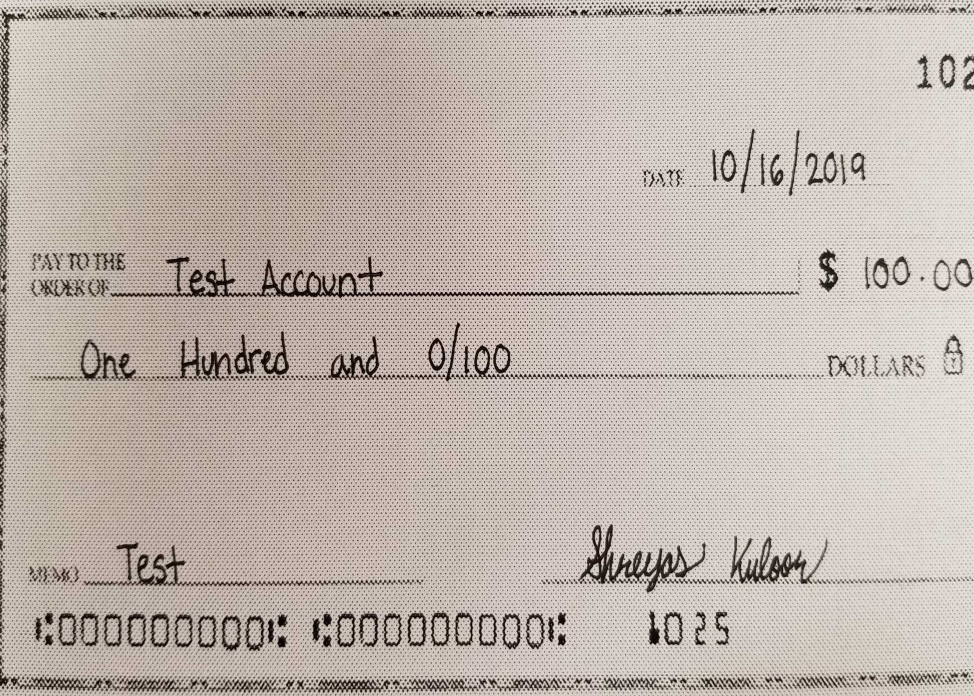 102
DATE 10/16/2019
PAY TO THE
ORDER OF Test Account $ 100.00
One Hundred and 0/100 DOLLARS
MEMO Test Shreyas Kuloor
⑆000000000⑆ ⑆000000000⑆ 1025